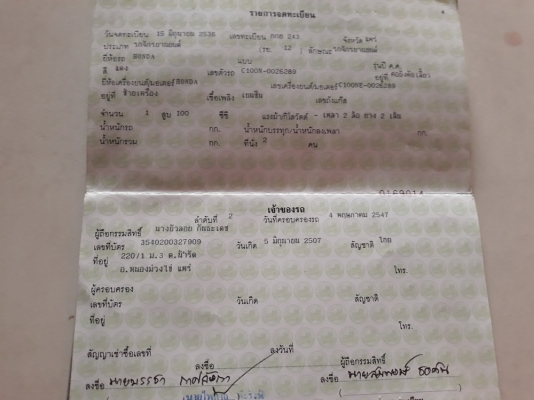 รายการจดทะเบียน
วันจดทะเบียน 15 มิถุนายน 2536 เลขทะเบียน กกย 243 จังหวัด แพร่
ประเภท รถจักรยานยนต์ (รย. 12 ) ลักษณะ รถจักรยานยนต์
ยี่ห้อรถ HONDA แบบ รุ่นปี ค.ศ.
สี แดง เลขตัวรถ C100N-0026289 อยู่ที่ คอถังคัย(เลี้ยว)
ยี่ห้อเครื่องยนต์/มอเตอร์ HONDA เลขเครื่องยนต์/มอเตอร์ C100NE-0026289
อยู่ที่ ซ้ายเครื่อง เชื้อเพลิง เบนซิน เลขถังแก๊ส
จำนวน 1 สูบ 100 ซีซี แรงม้า/กิโลวัตต์ - เพลา 2 ล้อ ยาง 2 เส้น
น้ำหนักรถ กก. น้ำหนักบรรทุก/น้ำหนักลงเพลา กก.
น้ำหนักรวม กก. ที่นั่ง 2 คน
เจ้าของรถ
ลำดับที่ 2 วันที่ครอบครองรถ 4 พฤษภาคม 2547
ผู้ถือกรรมสิทธิ์
เลขที่บัตร 3540200327909 วันเกิด 5 มิถุนายน 2507 สัญชาติ ไทย
ที่อยู่ 220/1 ม.3 ต.
อ.หนองม่วงไข่ แพร่ โทร.
ผู้ครอบครอง
เลขที่บัตร วันเกิด สัญชาติ
ที่อยู่ โทร.
สัญญาเช่าซื้อเลขที่ ลงวันที่
ลงชื่อ ผู้ถือกรรมสิทธิ์
ลงชื่อ ลงชื่อ